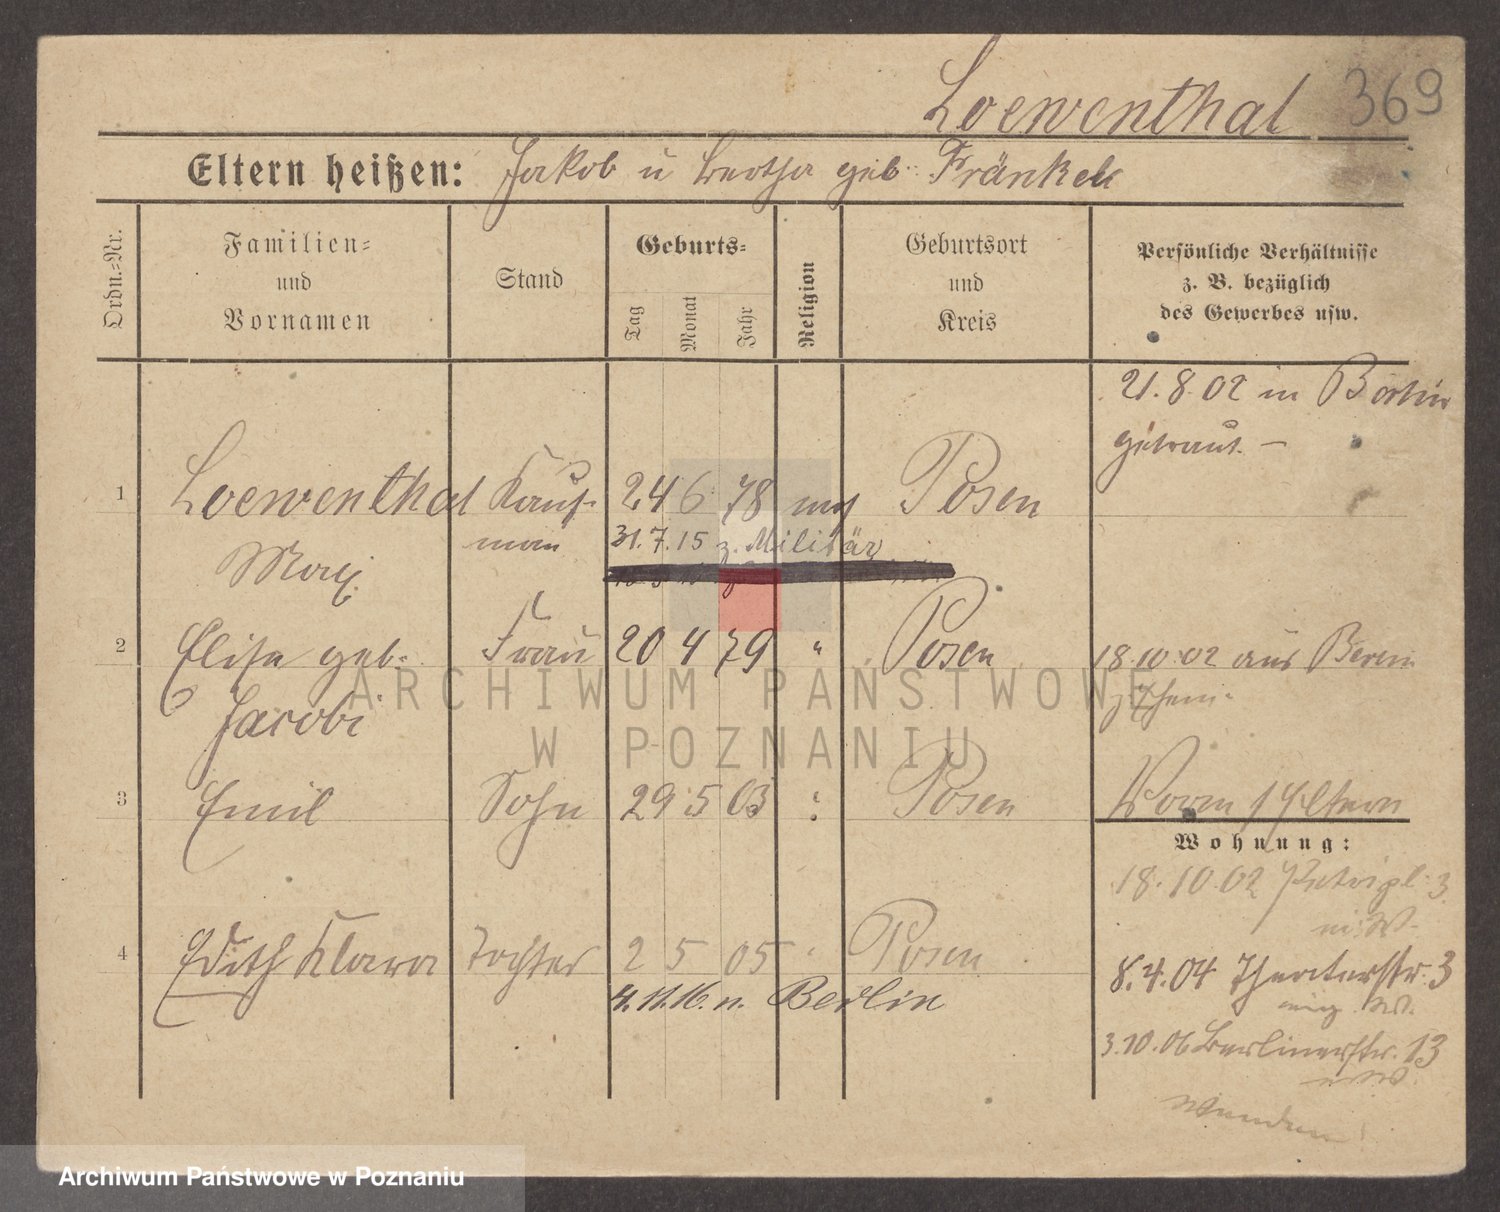 Loewenthal 369
Eltern heißen: Jakob u Bertha geb. Fränkel
Ordn.-Nr.
Familien-
und
Vornamen
Stand
Geburts-
Tag
Monat
Jahr
Religion
Geburtsort
und
Kreis
Persönliche Verhältnisse
z. B. bezüglich
des Gewerbes usw.
21.8.02 in Berlin
getraut. –
1 Loewenthal Kauf- 24 6 78 mos Posen
Max mann
31.7.15 z. Militär
2 Elise geb. Frau 20 4 79 " Posen 18.10.02 aus Berlin
Jacobi
3 Emil Sohn 29 5 03 : Posen Vorm / Eltern
Wohnung:
18.10.02 Petripl. 3
4 Edith Klara Tochter 2 5 05 " Posen
8.4.04 Theaterstr. 3
4.11.16. n. Berlin
3.10.06 Berlinerstr. 13
Wenden
ARCHIWUM PAŃSTWOWE
W POZNANIU
Archiwum Państwowe w Poznaniu